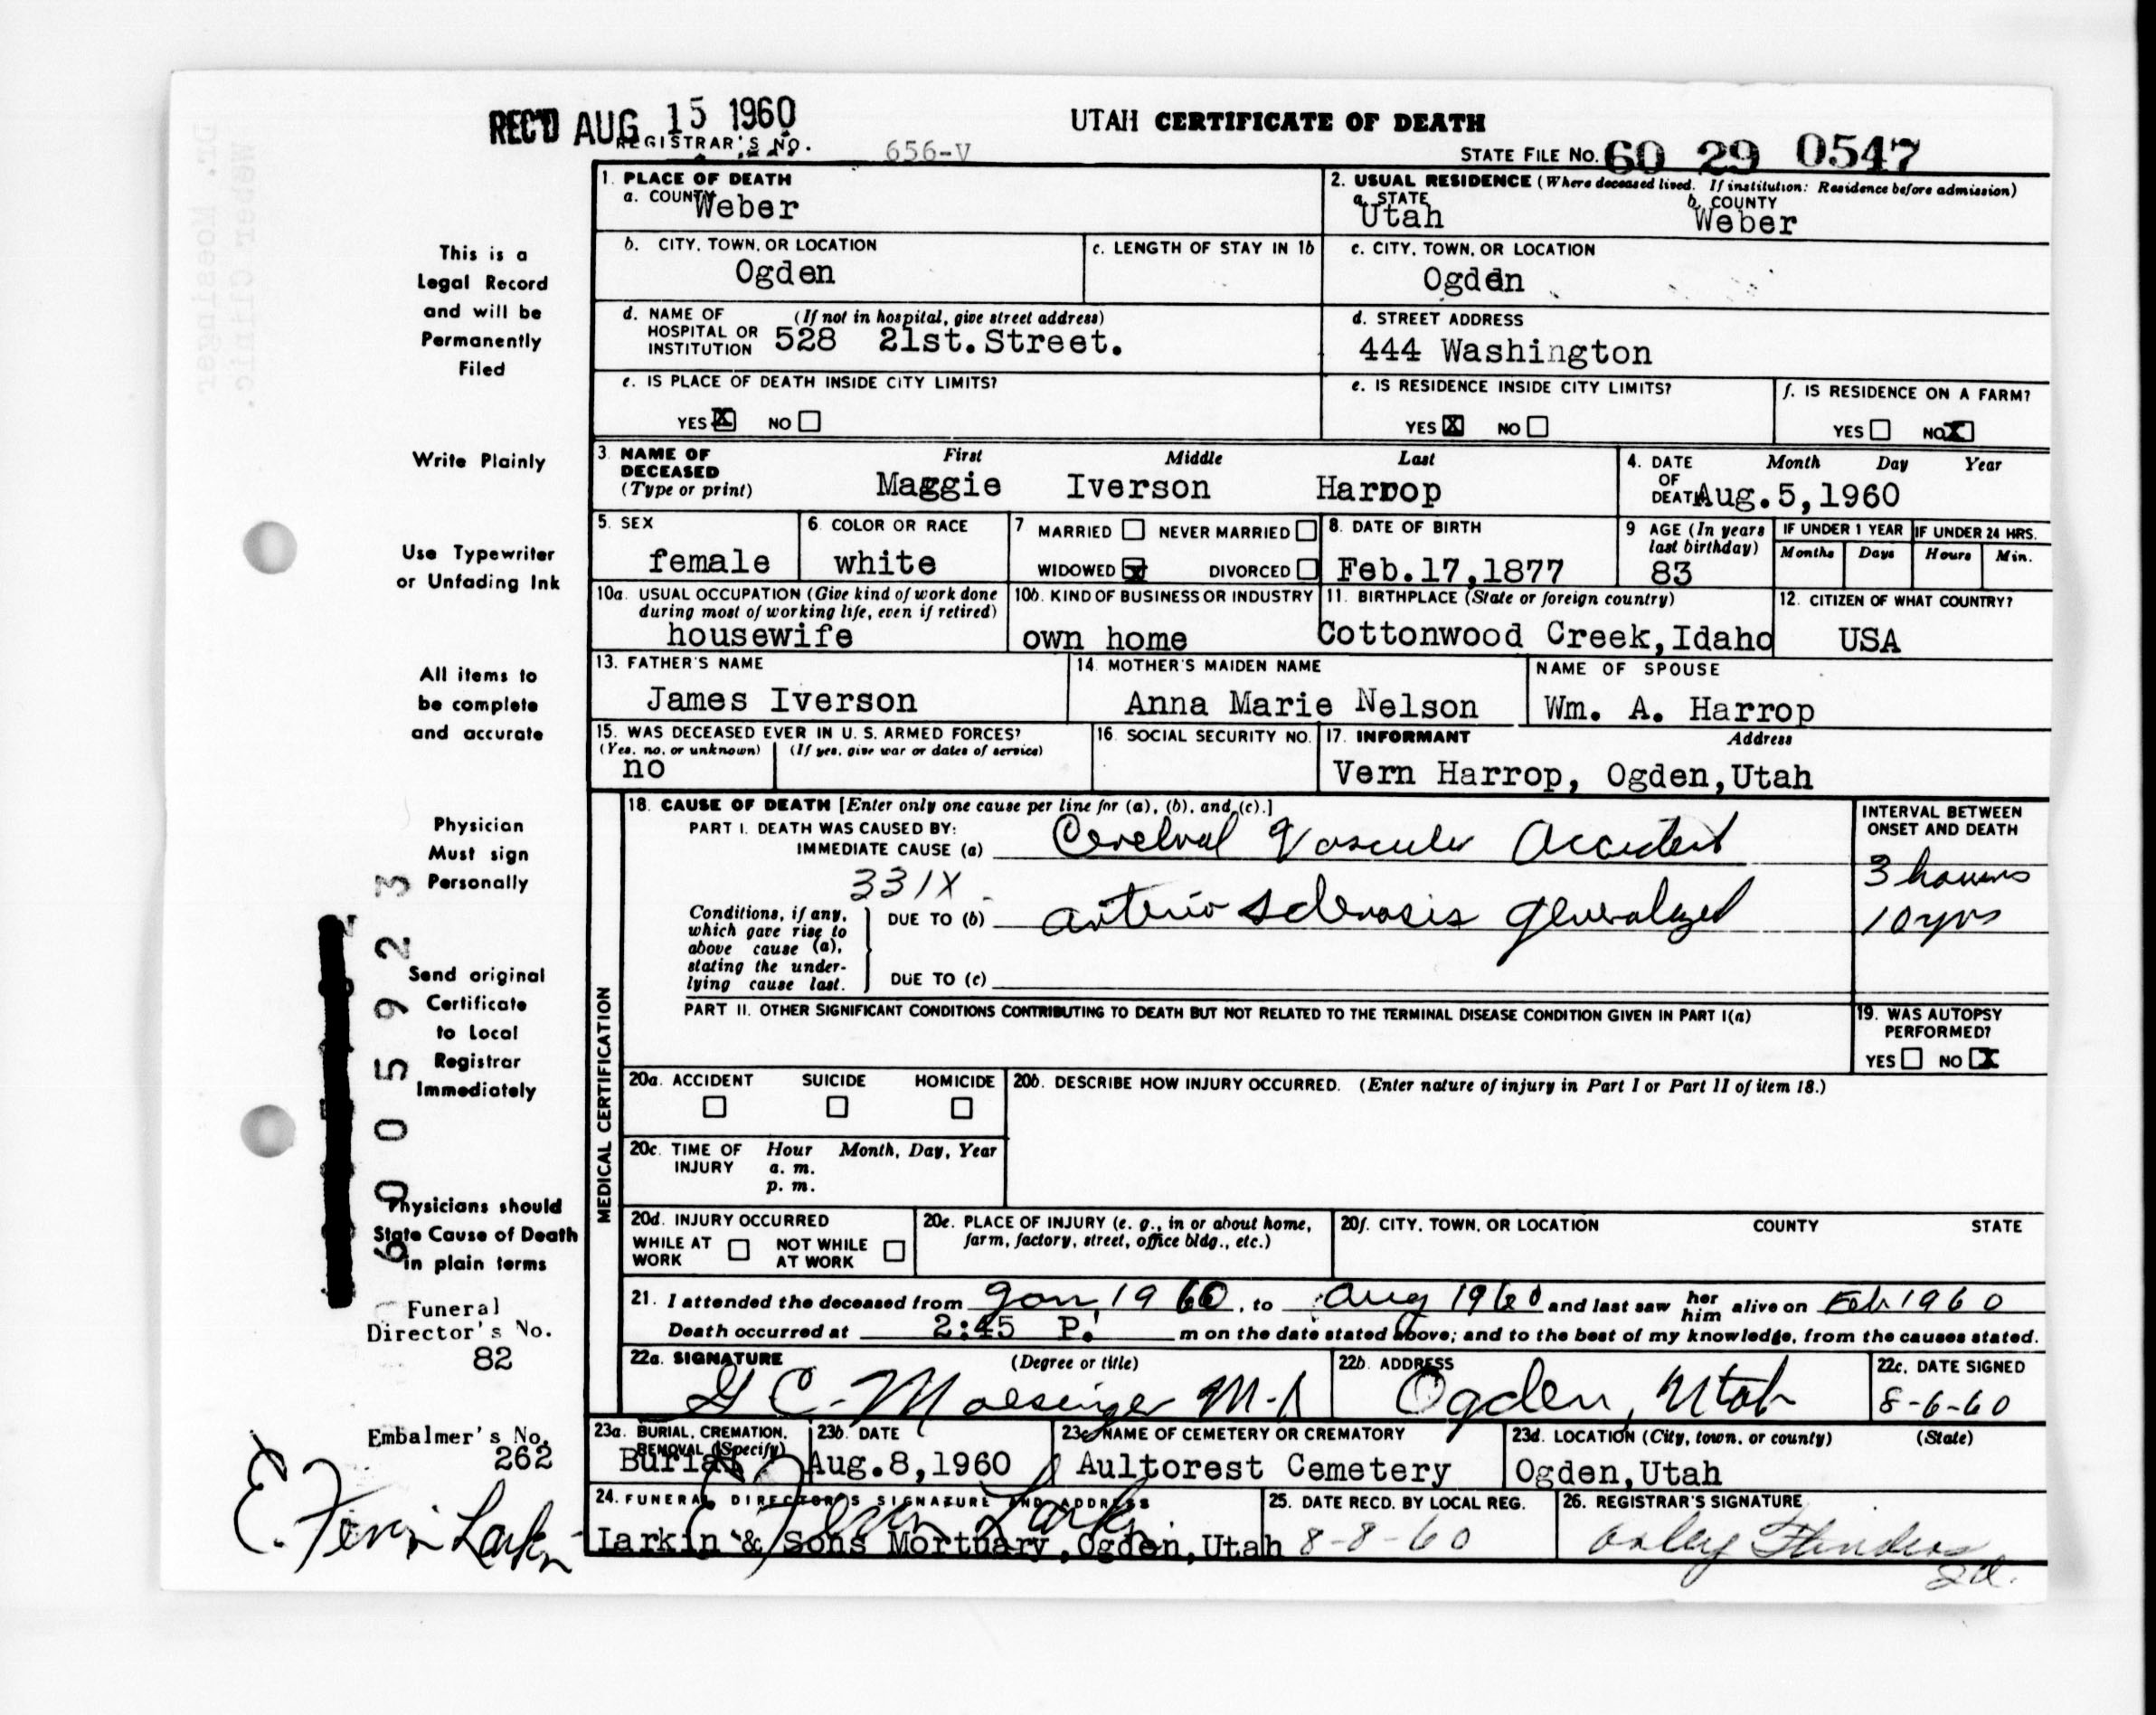 REC'D AUG 15 1960
UTAH CERTIFICATE OF DEATH
REGISTRAR'S NO. 656-V
STATE FILE NO. 60 29 0547
1. PLACE OF DEATH
a. COUNTY Weber
2. USUAL RESIDENCE (Where deceased lived. If institution: Residence before admission)
a. STATE Utah b. COUNTY Weber
b. CITY, TOWN, OR LOCATION Ogden
c. LENGTH OF STAY IN 1b
c. CITY, TOWN, OR LOCATION Ogden
d. NAME OF HOSPITAL OR INSTITUTION (If not in hospital, give street address) 528 21st.Street.
d. STREET ADDRESS 444 Washington
e. IS PLACE OF DEATH INSIDE CITY LIMITS?
YES X NO
e. IS RESIDENCE INSIDE CITY LIMITS?
YES X NO
f. IS RESIDENCE ON A FARM?
YES NO X
3. NAME OF DECEASED (Type or print) First Middle Last
Maggie Iverson Harrop
4. DATE OF DEATH Month Day Year
Aug.5,1960
5. SEX female
6. COLOR OR RACE white
7 MARRIED NEVER MARRIED
WIDOWED X DIVORCED
8. DATE OF BIRTH Feb.17,1877
9 AGE (In years last birthday) 83
IF UNDER 1 YEAR Months Days
IF UNDER 24 HRS. Hours Min.
10a. USUAL OCCUPATION (Give kind of work done during most of working life, even if retired) housewife
10b. KIND OF BUSINESS OR INDUSTRY own home
11. BIRTHPLACE (State or foreign country) Cottonwood Creek,Idaho
12. CITIZEN OF WHAT COUNTRY? USA
13. FATHER'S NAME James Iverson
14. MOTHER'S MAIDEN NAME Anna Marie Nelson
NAME OF SPOUSE Wm. A. Harrop
15. WAS DECEASED EVER IN U. S. ARMED FORCES?
(Yes, no, or unknown) (If yes, give war or dates of service)
no
16. SOCIAL SECURITY NO.
17. INFORMANT Address
Vern Harrop, Ogden,Utah
MEDICAL CERTIFICATION
18. CAUSE OF DEATH [Enter only one cause per line for (a), (b), and (c).]
INTERVAL BETWEEN ONSET AND DEATH
PART I. DEATH WAS CAUSED BY:
IMMEDIATE CAUSE (a) Cerebral Vascular Accident 3 hours
331X
Conditions, if any, which gave rise to above cause (a), stating the underlying cause last.
DUE TO (b) arterio sclerosis generalized 10 yrs
DUE TO (c)
PART II. OTHER SIGNIFICANT CONDITIONS CONTRIBUTING TO DEATH BUT NOT RELATED TO THE TERMINAL DISEASE CONDITION GIVEN IN PART I(a)
19. WAS AUTOPSY PERFORMED?
YES NO X
20a. ACCIDENT SUICIDE HOMICIDE
20b. DESCRIBE HOW INJURY OCCURRED. (Enter nature of injury in Part I or Part II of item 18.)
20c. TIME OF INJURY Hour Month, Day, Year
a. m.
p. m.
20d. INJURY OCCURRED
WHILE AT WORK NOT WHILE AT WORK
20e. PLACE OF INJURY (e. g., in or about home, farm, factory, street, office bldg., etc.)
20f. CITY, TOWN, OR LOCATION COUNTY STATE
21. I attended the deceased from Jan, 1960, to Aug 1960 and last saw her him alive on Feb 1960
Death occurred at 2:45 P. m on the date stated above; and to the best of my knowledge, from the causes stated.
22a. SIGNATURE (Degree or title)
G C. Moesinger M.D
22b. ADDRESS Ogden, Utah
22c. DATE SIGNED 8-6-60
23a. BURIAL, CREMATION, REMOVAL (Specify) Burial
23b. DATE Aug.8,1960
23c. NAME OF CEMETERY OR CREMATORY Aultorest Cemetery
23d. LOCATION (City, town, or county) (State)
Ogden,Utah
24. FUNERAL DIRECTOR'S SIGNATURE AND ADDRESS
Larkin & Sons Mortuary,Ogden,Utah
25. DATE RECD. BY LOCAL REG. 8-8-60
26. REGISTRAR'S SIGNATURE
This is a
Legal Record
and will be
Permanently
Filed
Write Plainly
Use Typewriter
or Unfading Ink
All items to
be complete
and accurate
Physician
Must sign
Personally
Send original
Certificate
to Local
Registrar
Immediately
Physicians should
State Cause of Death
in plain terms
6005923
Funeral
Director's No.
82
Embalmer's No.
262
E. Fervin Larkin
Weber Clinic.
Dr. Moesinger